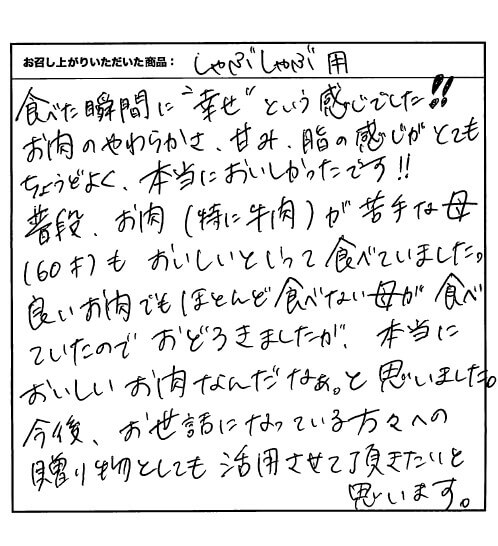 お召し上がりいただいた商品： しゃぶしゃぶ用
食べた瞬間に"幸せ"という感じでした!!
お肉のやわらかさ、甘み、脂の感じがとても
ちょうどよく、本当においしかったです!!
普段、お肉(特に牛肉)が苦手な母
(60才)も おいしいといって食べていました。
良いお肉でもほとんど食べない母が食べ
ていたので おどろきましたが、本当に
おいしいお肉なんだなぁ。と思いました。
今後、お世話になっている方々への
贈り物としても活用させて頂きたいと
思います。